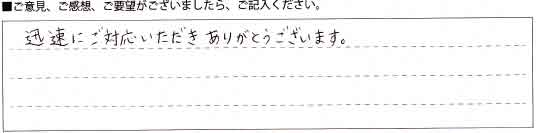 ■ご意見、ご感想、ご要望がございましたら、ご記入ください。
迅速にご対応いただきありがとうございます。